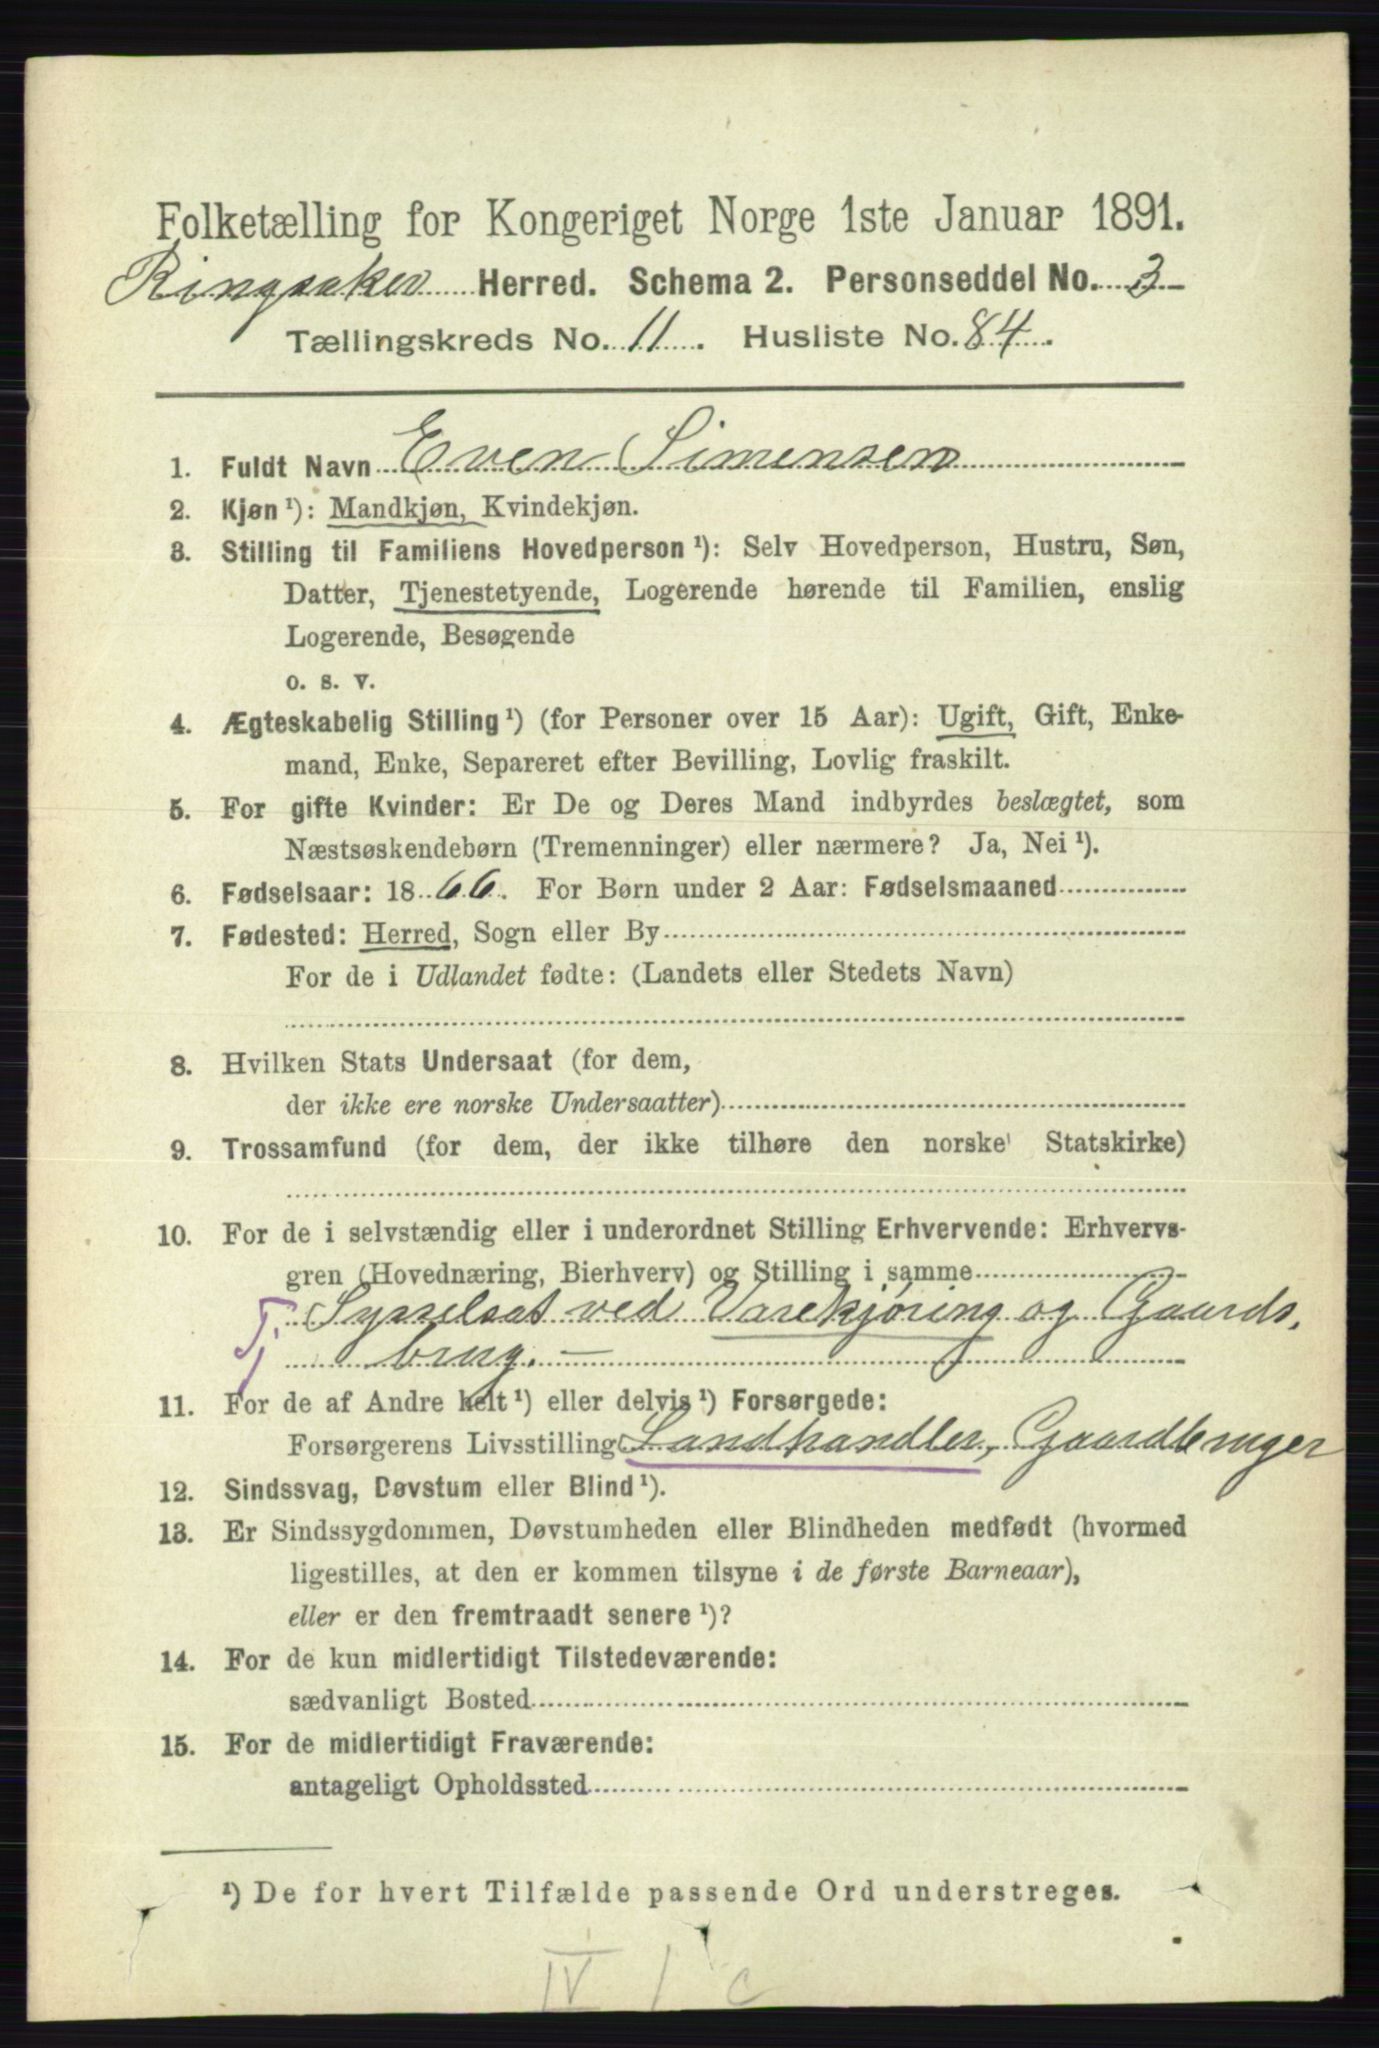 Folketælling for Kongeriget Norge 1ste Januar 1891.
Ringsaker Herred. Schema 2. Personseddel No. 3
Tællingskreds No. 11. Husliste No. 84.
1. Fuldt Navn Even Simensen
2. Kjøn¹): Mandkjøn, Kvindekjøn.
3. Stilling til Familiens Hovedperson¹): Selv Hovedperson, Hustru, Søn,
Datter, Tjenestetyende, Logerende hørende til Familien, enslig
Logerende, Besøgende
o. s. v.
4. Ægteskabelig Stilling¹) (for Personer over 15 Aar): Ugift, Gift, Enke-
mand, Enke, Separeret efter Bevilling, Lovlig fraskilt.
5. For gifte Kvinder: Er De og Deres Mand indbyrdes beslægtet, som
Næstsøskendebørn (Tremenninger) eller nærmere? Ja, Nei¹).
6. Fødselsaar: 1866. For Børn under 2 Aar: Fødselsmaaned
7. Fødested: Herred, Sogn eller By
For de i Udlandet fødte: (Landets eller Stedets Navn)
8. Hvilken Stats Undersaat (for dem,
der ikke ere norske Undersaatter)
9. Trossamfund (for dem, der ikke tilhøre den norske Statskirke)
10. For de i selvstændig eller i underordnet Stilling Erhvervende: Erhvervs-
gren (Hovednæring, Bierhverv) og Stilling i samme
Sysselsat ved Varekjøring og Gaards.
brug. —
11. For de af Andre helt¹) eller delvis¹) Forsørgede:
Forsørgerens Livsstilling Landhandler, Gaardbruger
12. Sindssvag, Døvstum eller Blind¹).
13. Er Sindssygdommen, Døvstumheden eller Blindheden medfødt (hvormed
ligestilles, at den er kommen tilsyne i de første Barneaar),
eller er den fremtraadt senere¹)?
14. For de kun midlertidigt Tilstedeværende:
sædvanligt Bosted
15. For de midlertidigt Fraværende:
antageligt Opholdssted
¹) De for hvert Tilfælde passende Ord understreges.
IV 1 c